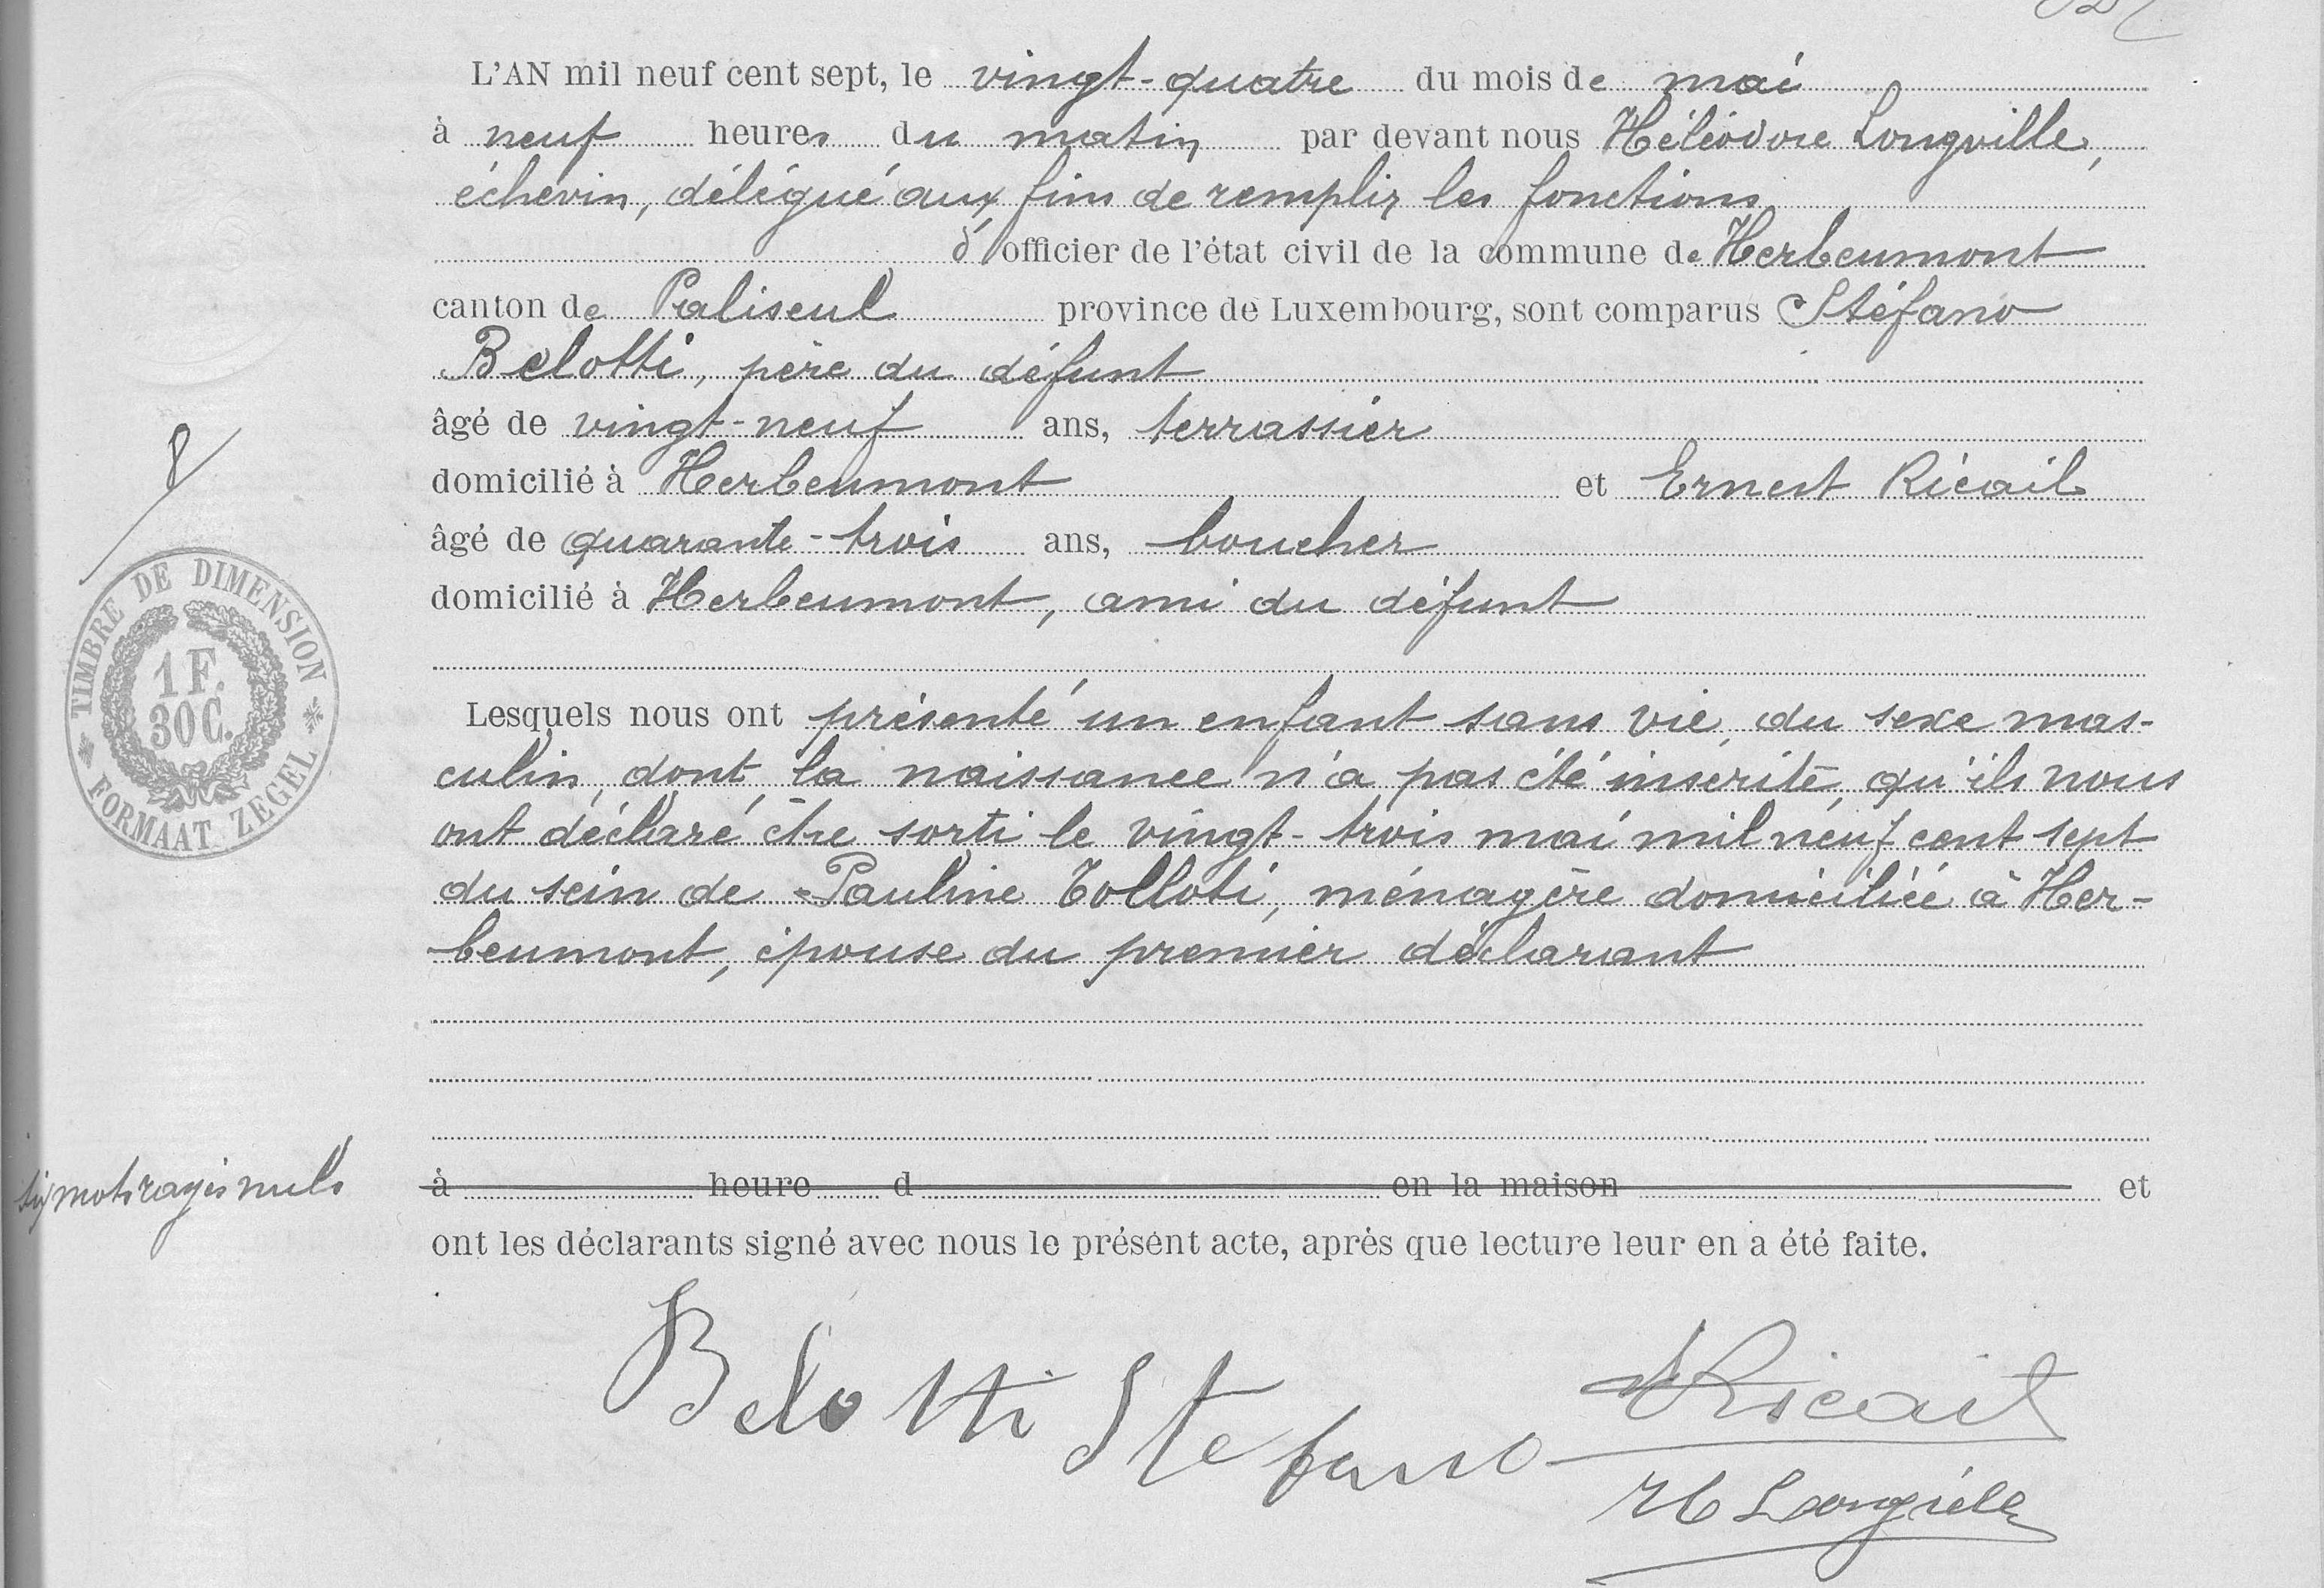 L'AN mil neuf cent sept, le vingt-quatre du mois de mai
à neuf heures du matin par devant nous Héliodore Longville,
échevin, délégué aux fins de remplir les fonctions
d'officier de l'état civil de la commune de Herbeumont
canton de Paliseul province de Luxembourg, sont comparus Stéfano
Belotti, père du défunt
âgé de vingt-neuf ans, terrassier
domicilié à Herbeumont et Ernest Ricail
âgé de quarante-trois ans, boucher
domicilié à Herbeumont, ami du défunt
8
TIMBRE DE DIMENSION
1 F.
30 C.
FORMAAT ZEGEL
Lesquels nous ont présenté un enfant sans vie, du sexe mas-
culin, dont la naissance n'a pas été inscrite, qu'ils nous
ont déclaré être sorti le vingt-trois mai mil neuf cent sept
du sein de Pauline Tolloti, ménagère domiciliée à Her-
beumont, épouse du premier déclarant
six mots rayés nuls
à heure d en la maison et
ont les déclarants signé avec nous le présent acte, après que lecture leur en a été faite.
Belotti Stefano
Ricail
H Longville